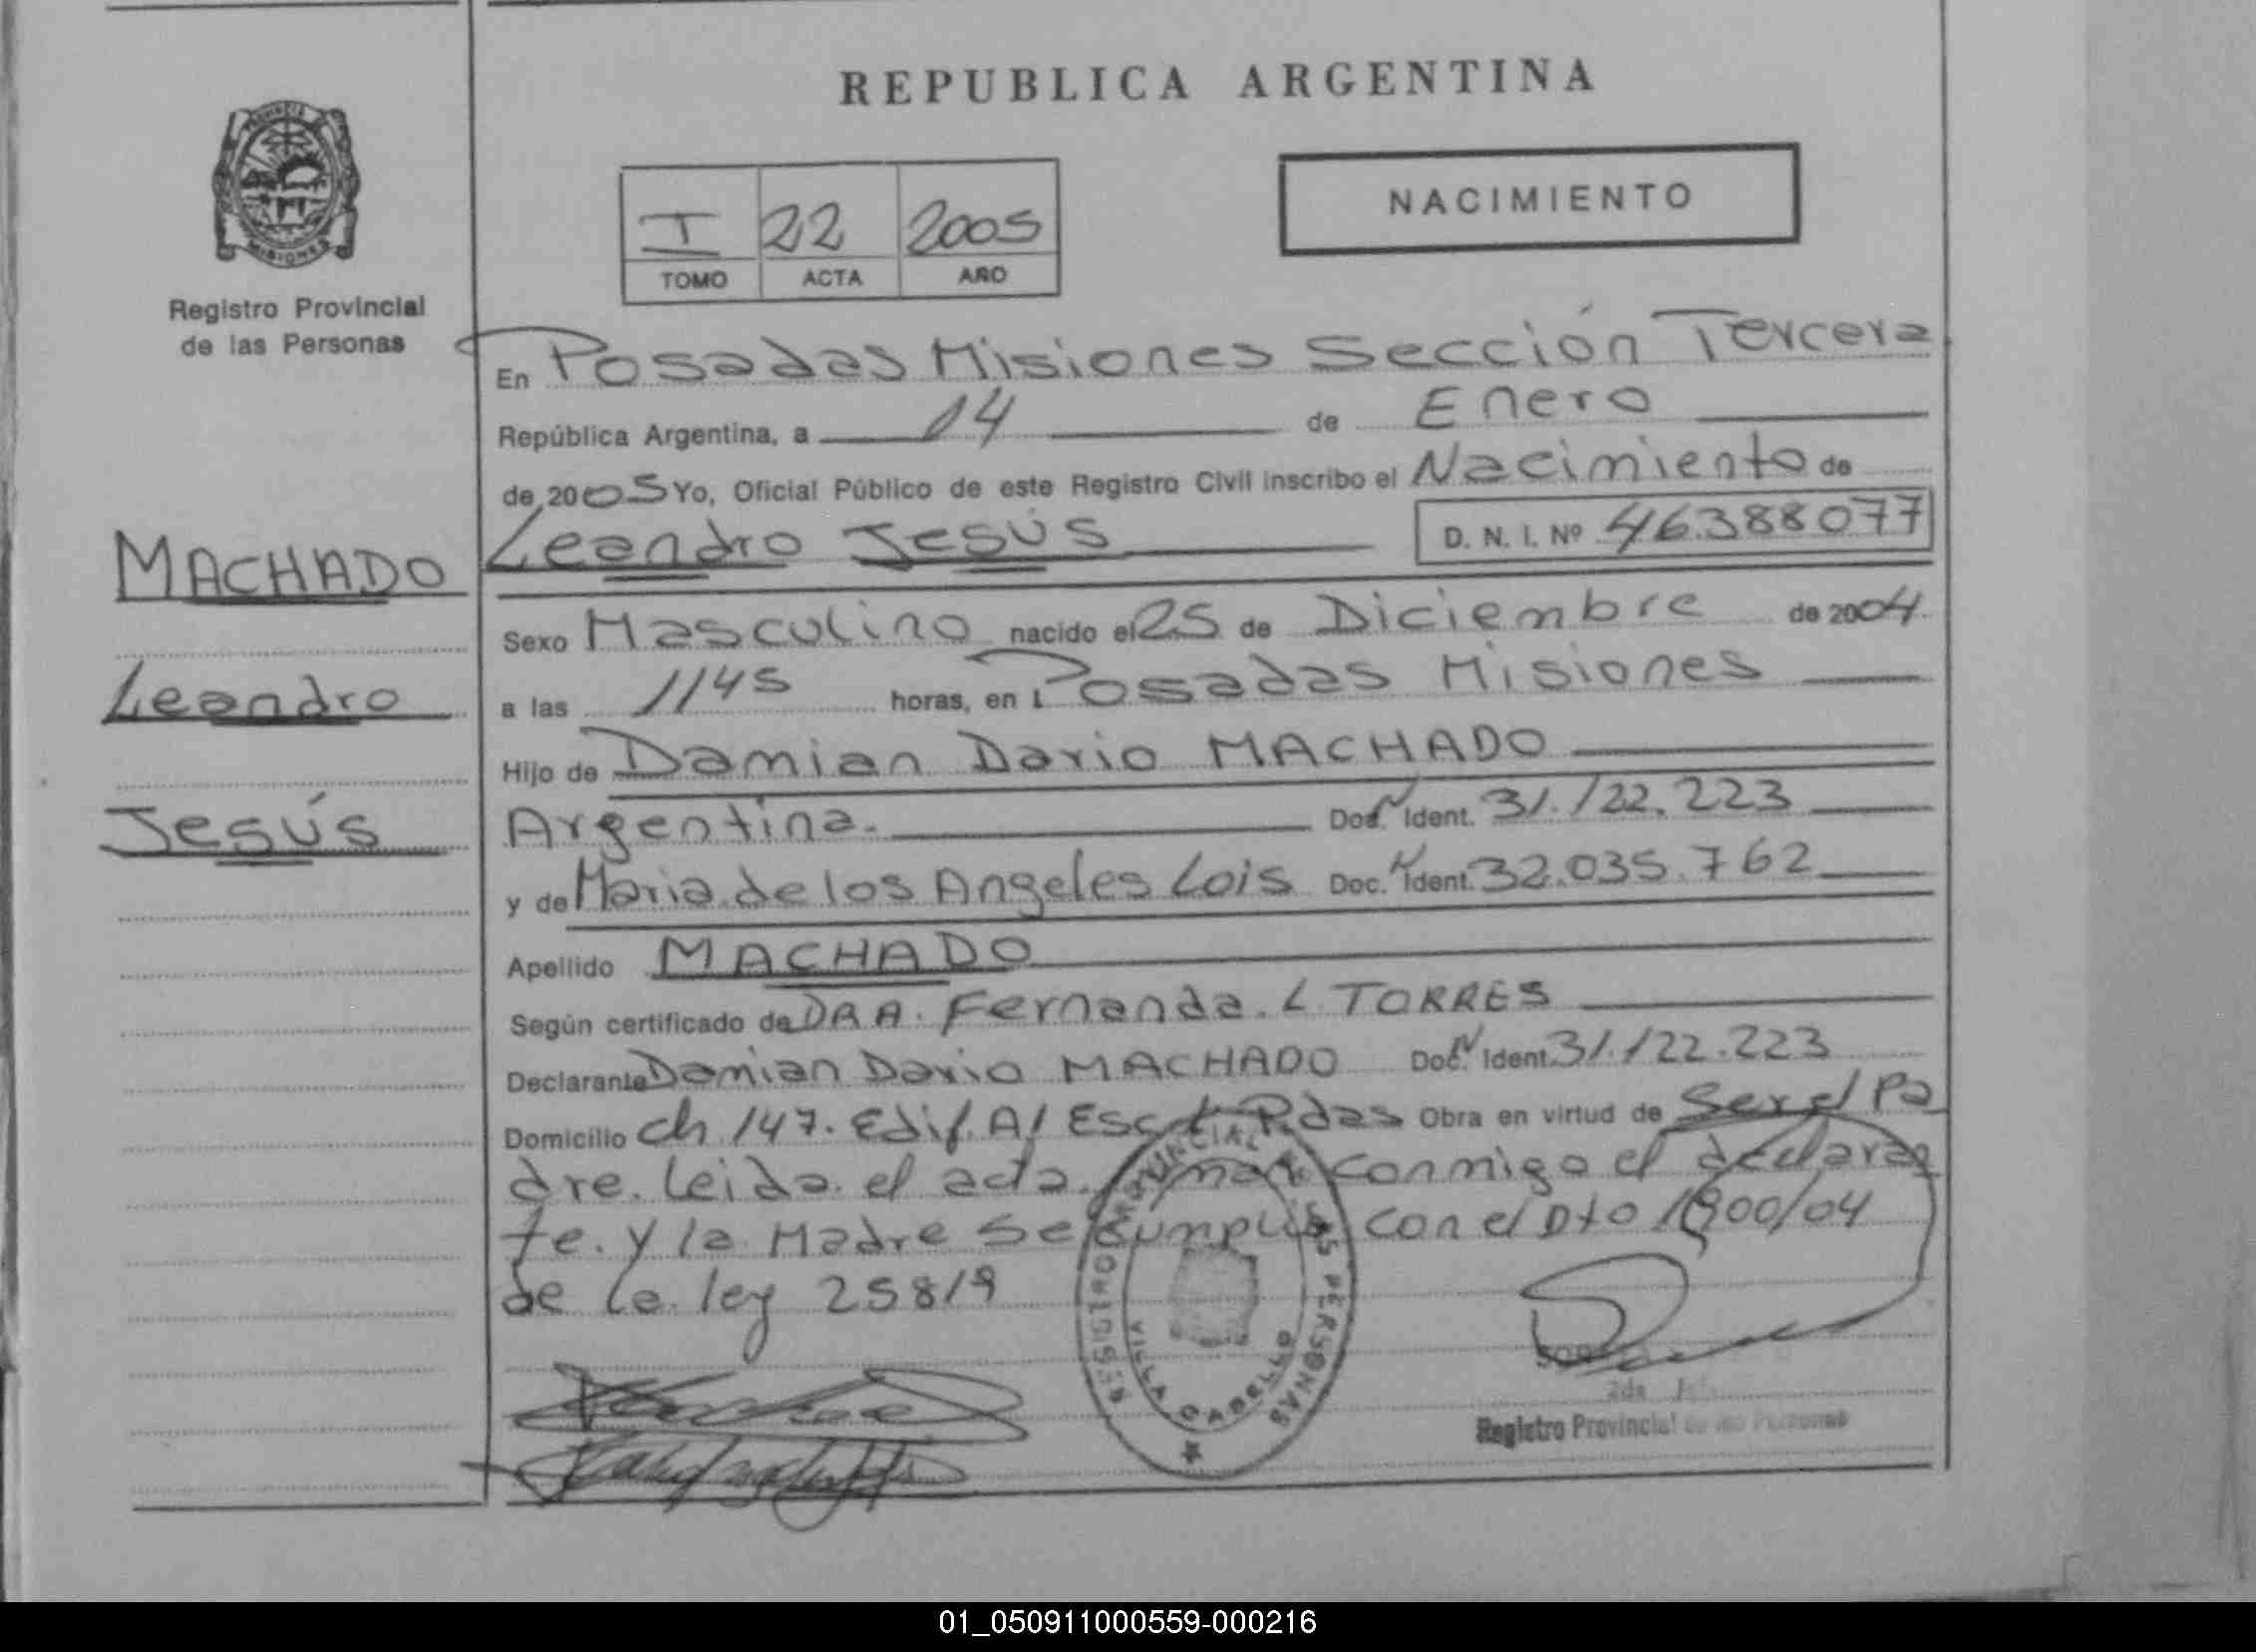 REPUBLICA ARGENTINA
PROVINCIA
MISIONES
Registro Provincial
de las Personas
I 22 2005
TOMO ACTA AÑO
NACIMIENTO
MACHADO
Leandro
Jesús
En Posadas Misiones Sección Tercera
República Argentina, a 14 de Enero
de 2005 Yo, Oficial Público de este Registro Civil inscribo el Nacimiento de
Leandro Jesús D. N. I. Nº 46.388077
Sexo Masculino nacido el 25 de Diciembre de 2004
a las 1145 horas, en Posadas Misiones
Hijo de Damian Dario MACHADO
Argentina. Doc. Ident. 31.122.223
y de Maria de los Angeles Lois Doc. Ident. 32.035.762
Apellido MACHADO
Según certificado de DRA. Fernanda. L TORRES
Declarante Damian Dario MACHADO Doc. Ident. 31.122.223
Domicilio ch 147. Edif. A1 Esc Pdas Obra en virtud de Ser el Pa
dre. Leida el acta. firman conmigo el declaran
te. y la Madre Se cumplio con el Dto 1900/04
de la ley 25819
PROVINCIAL DE LAS PERSONAS
VILLA CABELLO
MISIONES
2da Jefa
Registro Provincial de las Personas
01_050911000559-000216